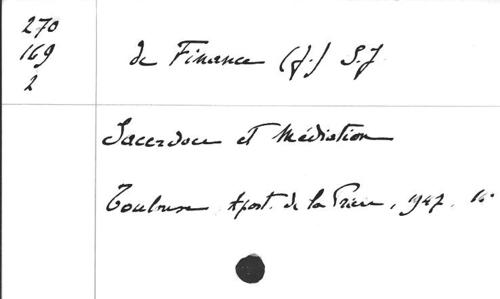 270
169
2
de Finance (J.) S.J
Sacerdoce et Médiation
Toulouse, Apost. de la Prière, 1947, 16°